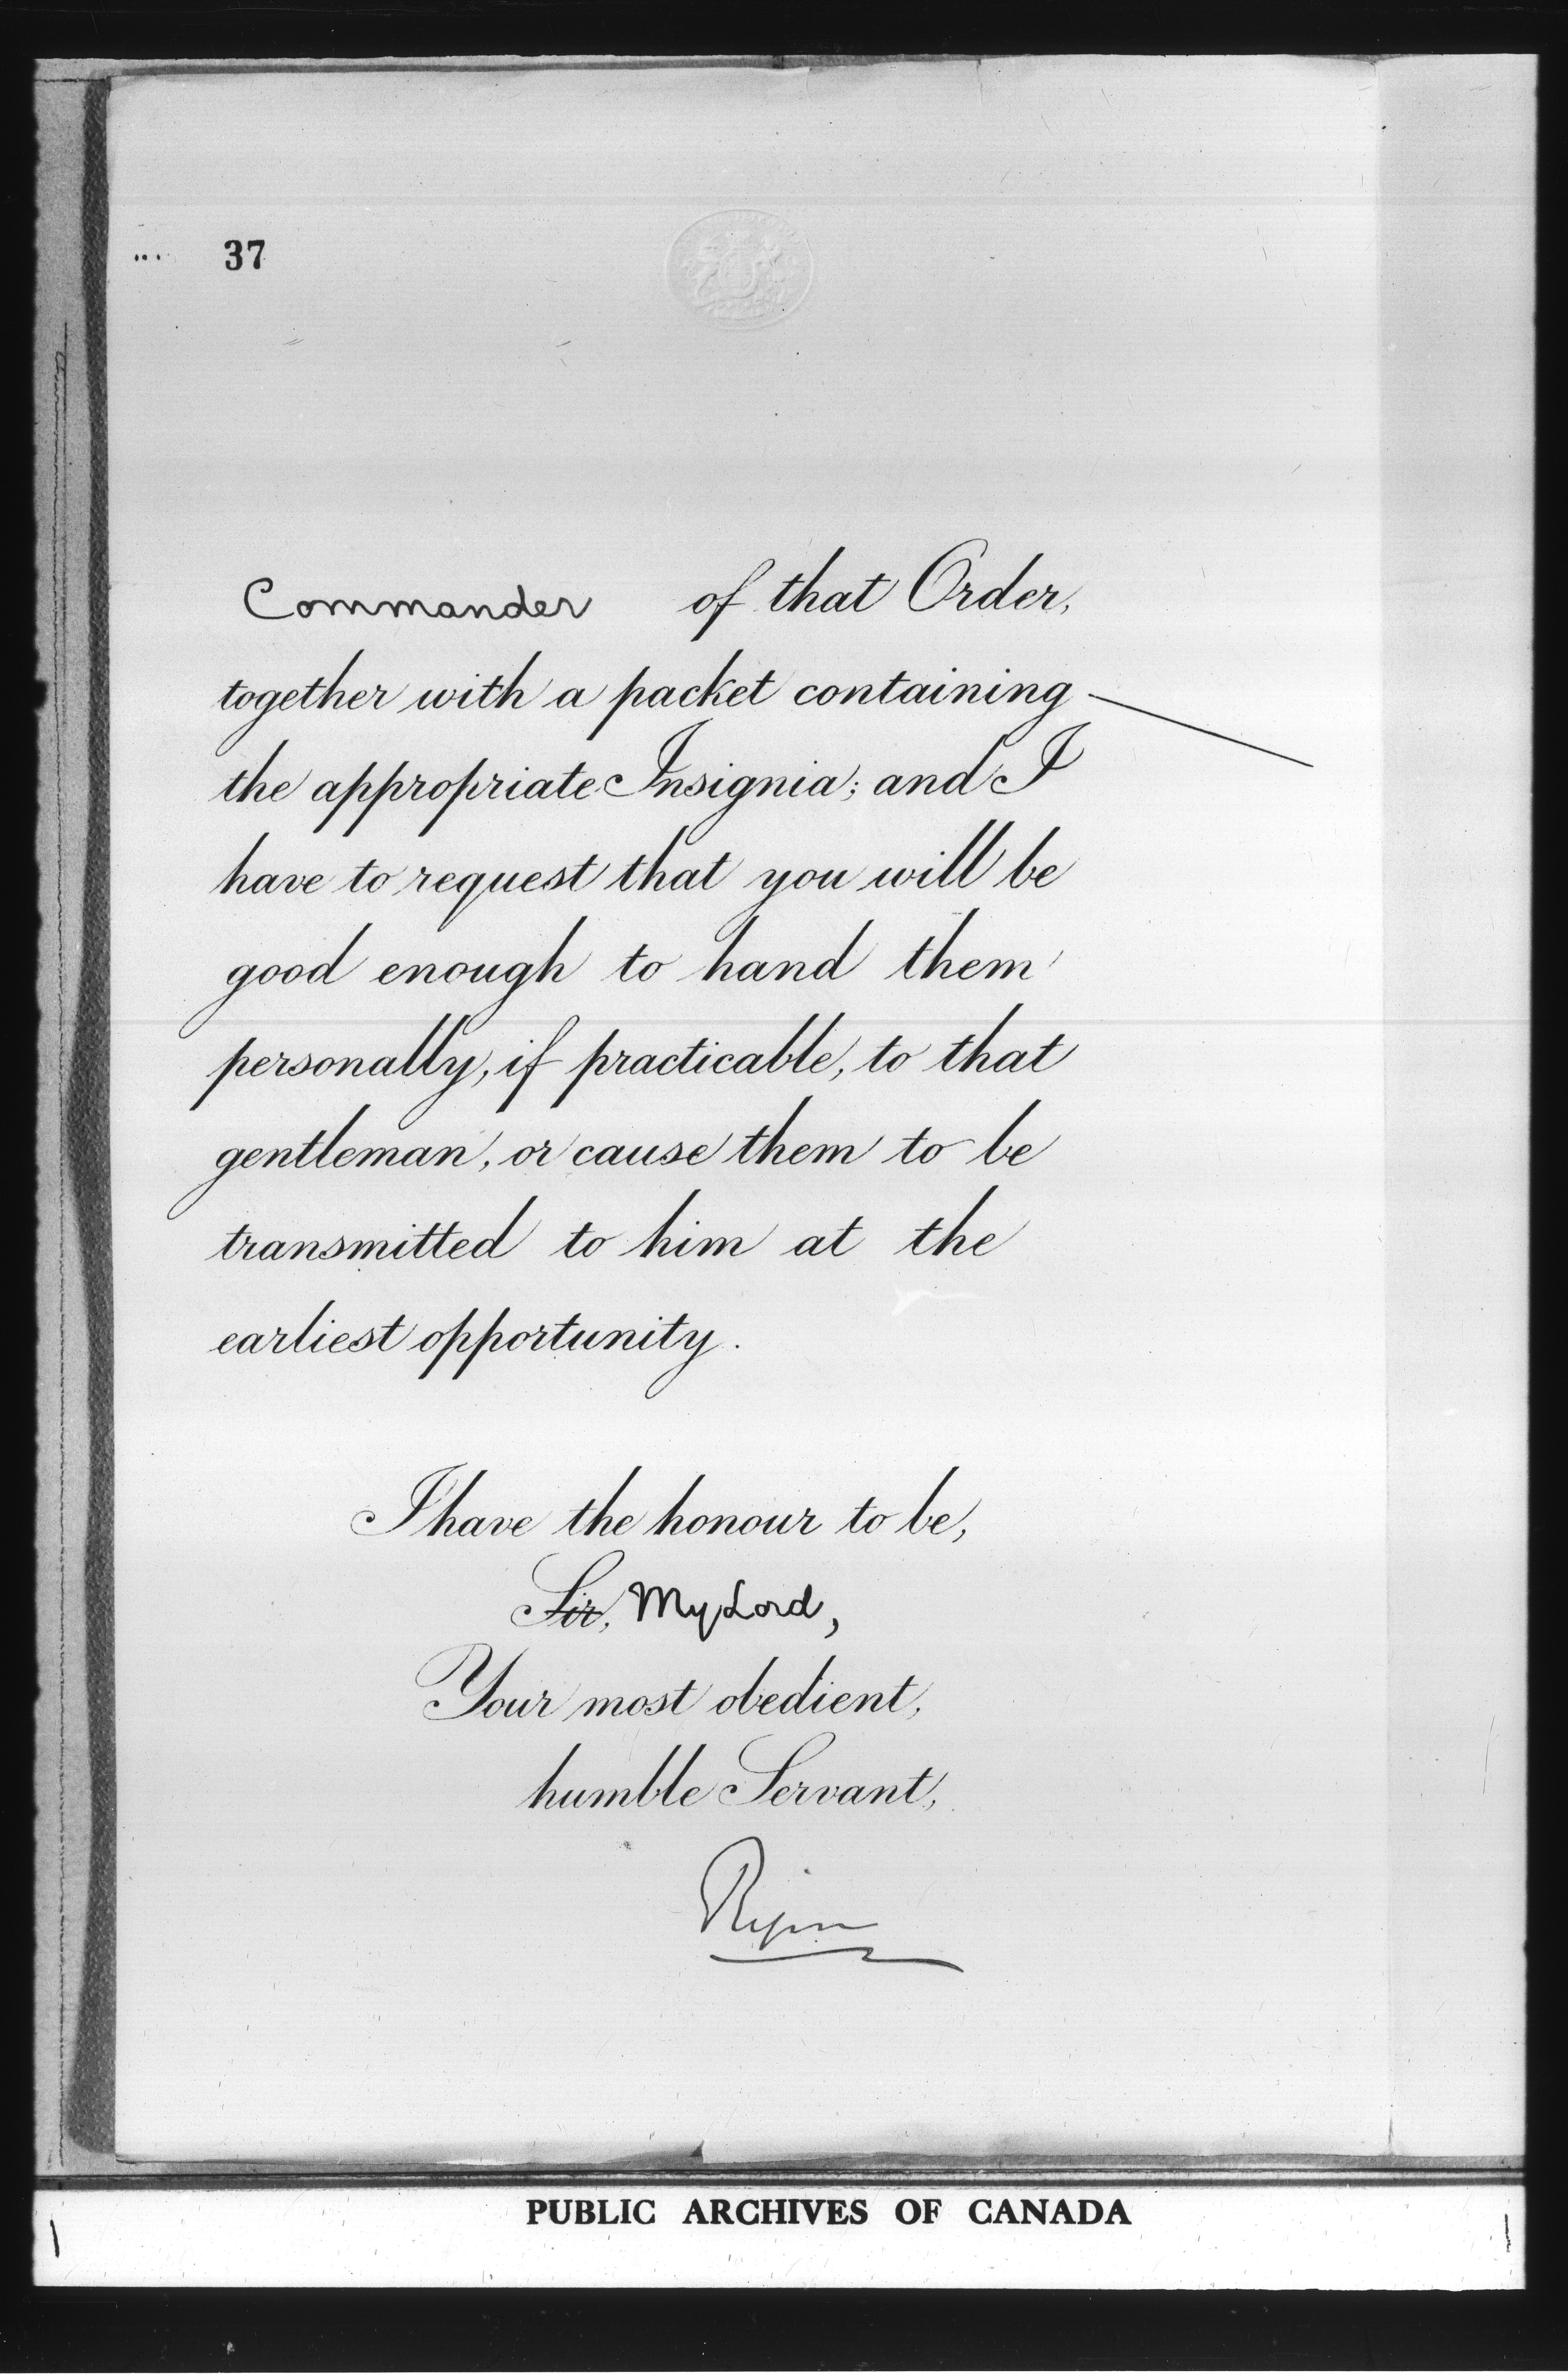 37
Commander of that Order,
together with a packet containing
the appropriate Insignia; and I
have to request that you will be
good enough to hand them
personally, if practicable, to that
gentleman, or cause them to be
transmitted to him at the
earliest opportunity.
I have the honour to be,
Sir, My Lord,
Your most obedient,
humble Servant,
Ripon
PUBLIC ARCHIVES OF CANADA